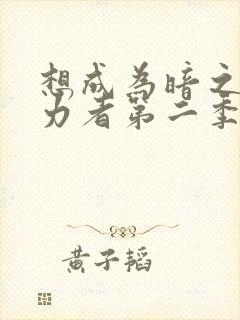 想成为暗之
力者第二季
黄子韬